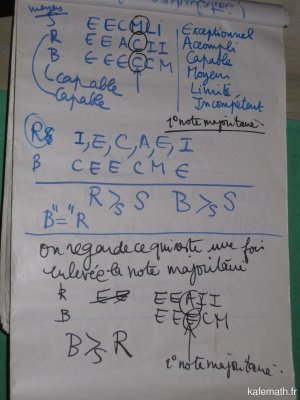 moyens
S E E C M L i
R E E A C I I
B E E E E C M
Capable
Capable
Exceptionnel
Accompli
Capable
Moyen
Limité
Incompétent
1° note majoritaire
R I, E, C, A, E, I
B C E E C M E
R ≥s S B ≥s S
B "=" R
on regarde ce qui reste une fois
enlevée la note majoritaire
R E E A I I
B E E E C M
B ≥s R
2° note majoritaire
kafemath.fr